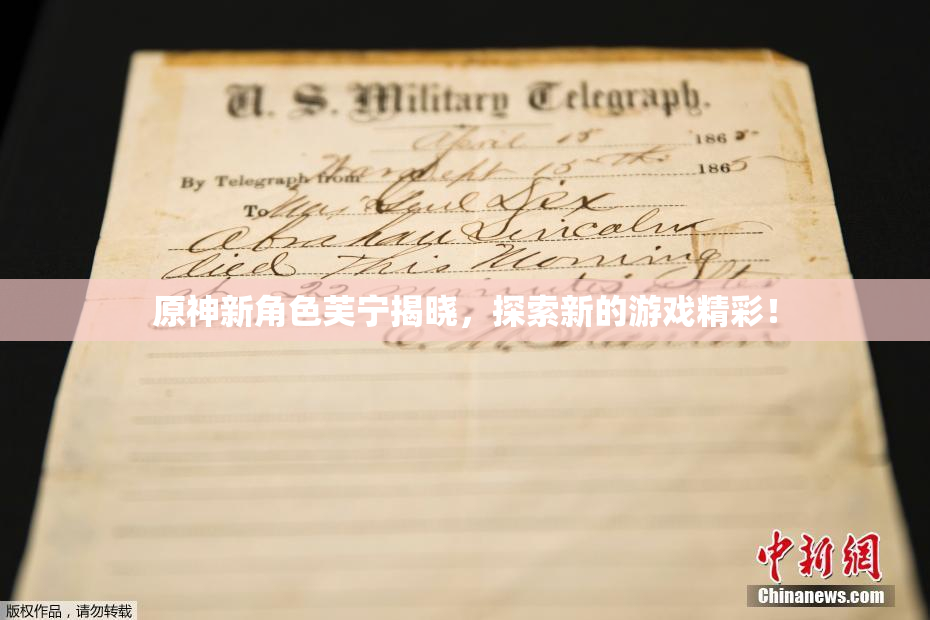 U. S. Military Telegraph.
April 15 1865
By Telegraph from War Dept 15th 1865
To Maj Genl Dix
Abraham Lincoln
died this Morning
at 22 minutes after
原神新角色芙宁揭晓，探索新的游戏精彩！
E. M. Stanton
中新网
Chinanews.com
版权作品，请勿转载